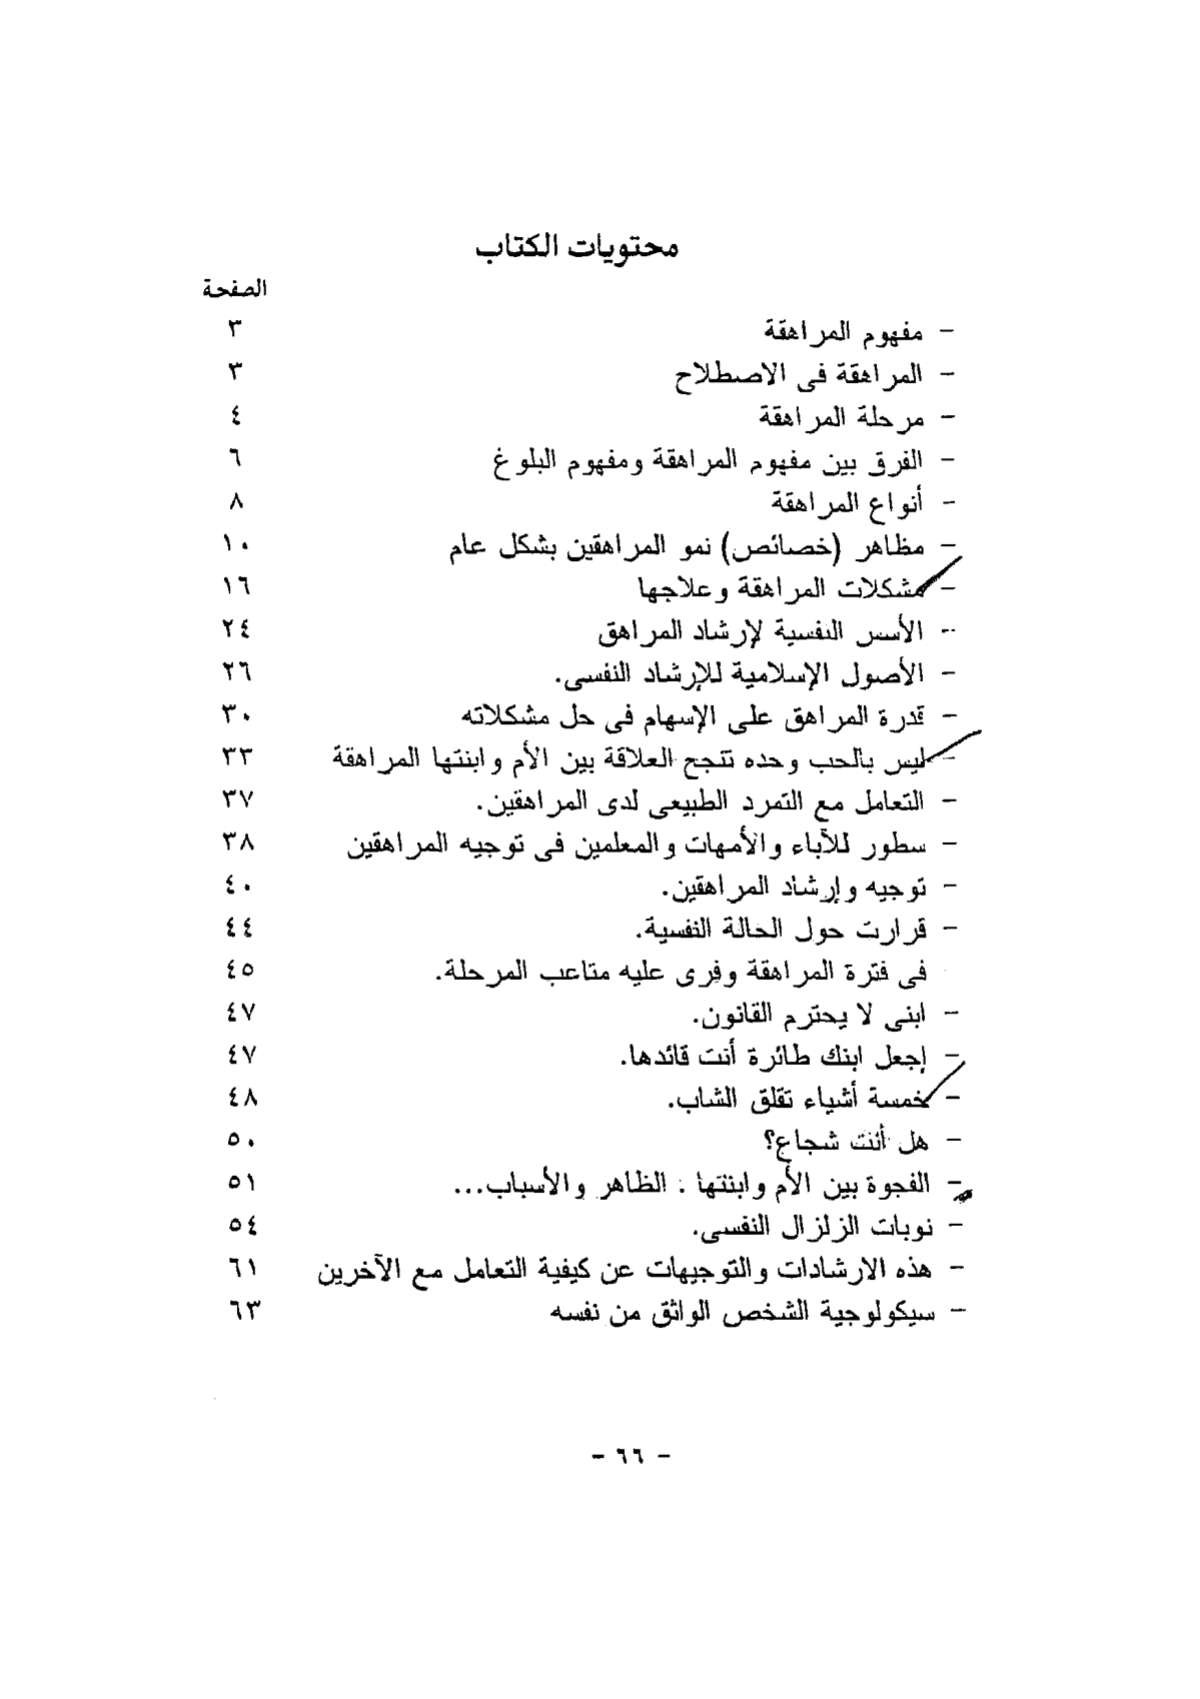 محتويات الكتاب
الصفحة
- مفهوم المراهقة ٣
- المراهقة فى الاصطلاح ٣
- مرحلة المراهقة ٤
- الفرق بين مفهوم المراهقة ومفهوم البلوغ ٦
- أنواع المراهقة ٨
- مظاهر (خصائص) نمو المراهقين بشكل عام ١٠
- مشكلات المراهقة وعلاجها ١٦
- الأسس النفسية لإرشاد المراهق ٢٤
- الأصول الإسلامية للإرشاد النفسى. ٢٦
- قدرة المراهق على الإسهام فى حل مشكلاته ٣٠
- ليس بالحب وحده تنجح العلاقة بين الأم وابنتها المراهقة ٣٣
- التعامل مع التمرد الطبيعى لدى المراهقين. ٣٧
- سطور للآباء والأمهات والمعلمين فى توجيه المراهقين ٣٨
- توجيه وإرشاد المراهقين. ٤٠
- قرارت حول الحالة النفسية. ٤٤
فى فترة المراهقة وفرى عليه متاعب المرحلة. ٤٥
- ابنى لا يحترم القانون. ٤٧
- إجعل ابنك طائرة أنت قائدها. ٤٧
- خمسة أشياء تقلق الشاب. ٤٨
- هل أنت شجاع؟ ٥٠
- الفجوة بين الأم وابنتها : الظاهر والأسباب... ٥١
- نوبات الزلزال النفسى. ٥٤
- هذه الارشادات والتوجيهات عن كيفية التعامل مع الآخرين ٦١
- سيكولوجية الشخص الواثق من نفسه ٦٣
- ٦٦ -